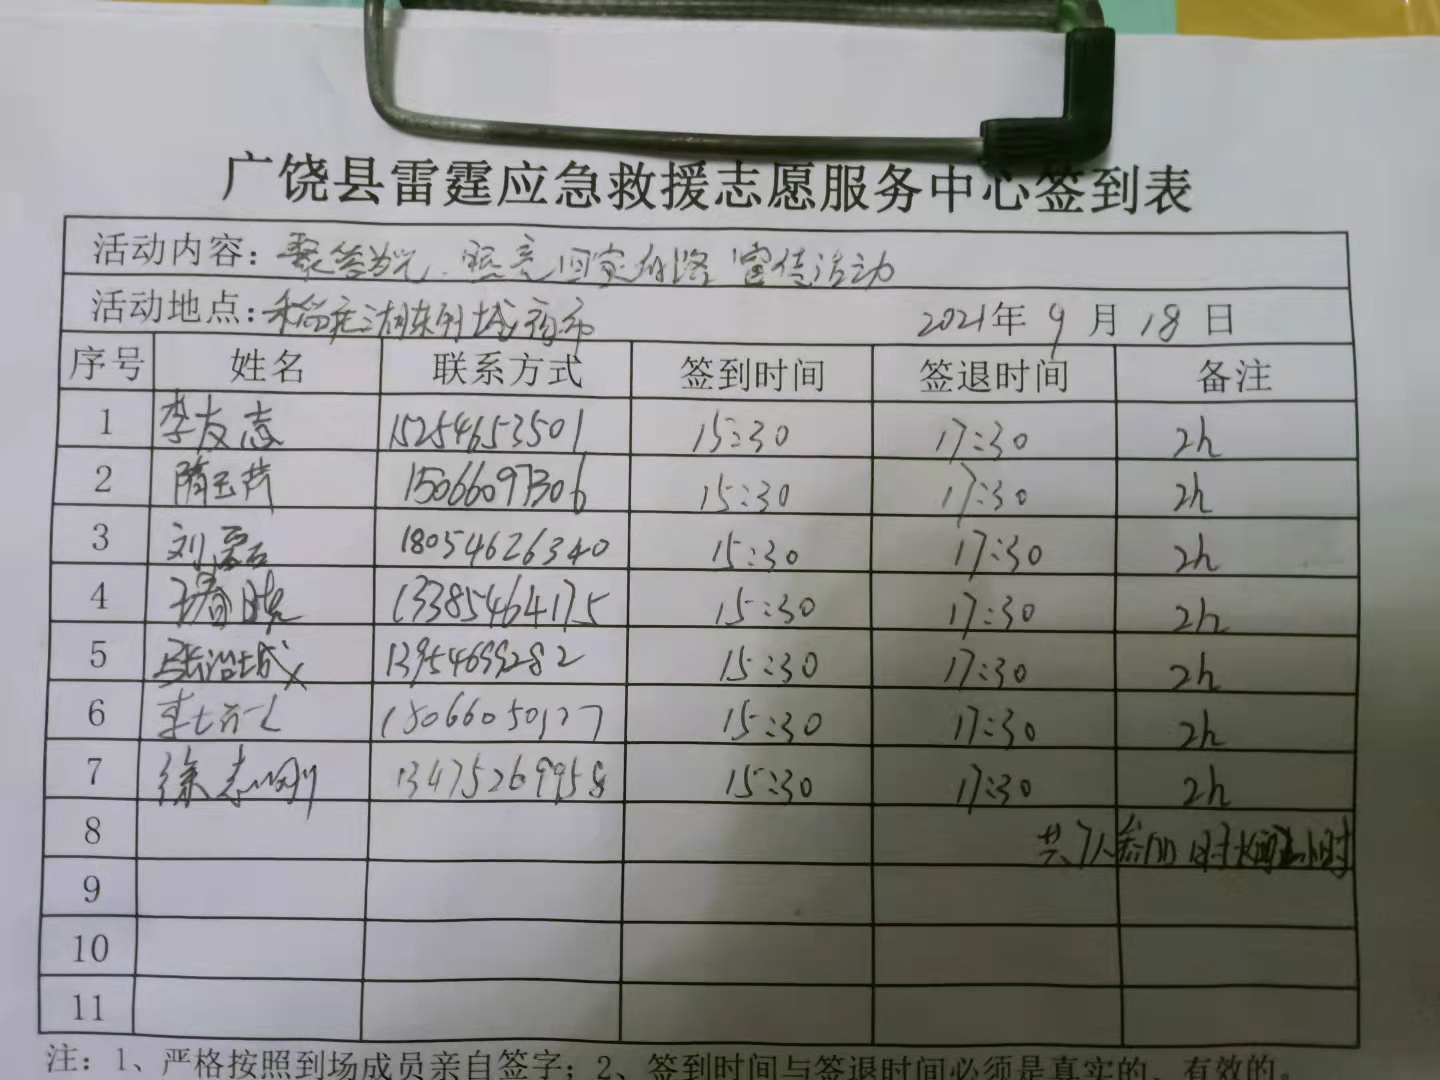 广饶县雷霆应急救援志愿服务中心签到表
活动内容：聚萤为光 照亮回家的路 宣传活动
活动地点：稻庄湖 2021年9月18日
序号 姓名 联系方式 签到时间 签退时间 备注
1 李友志 15254653501 15:30 17:30 2h
2 隋玉 15066097306 15:30 17:30 2h
3 刘磊 18054626340 15:30 17:30 2h
4 13385464175 15:30 17:30 2h
5 张治城 13954699282 15:30 17:30 2h
6 15:30 17:30 2h
7 徐志刚 13475269958 15:30 17:30 2h
8 共7人参加 时长 小时
9
10
11
注：1、严格按照到场成员亲自签字；2、签到时间与签退时间必须是真实的、有效的。